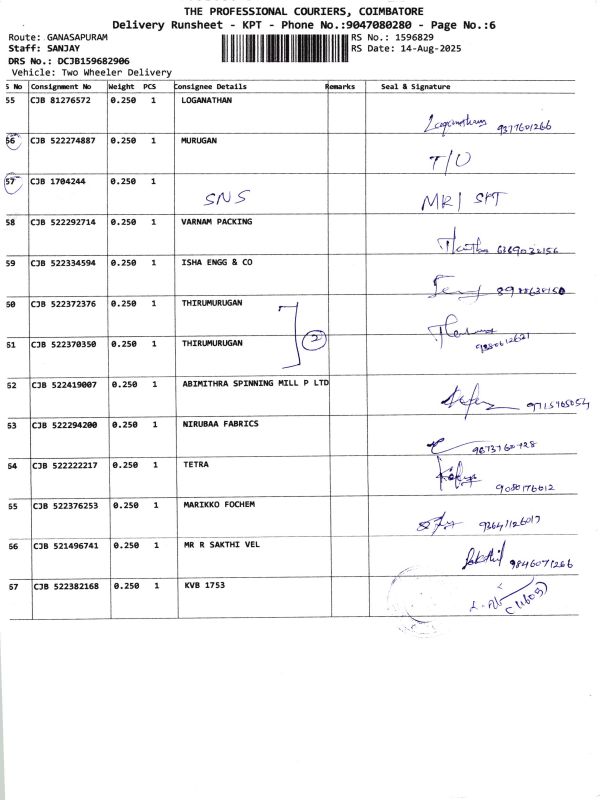 THE PROFESSIONAL COURIERS, COIMBATORE
Delivery Runsheet - KPT - Phone No.:9047080280 - Page No.:6
Route: GANASAPURAM RS No.: 1596829
Staff: SANJAY RS Date: 14-Aug-2025
DRS No.: DCJB159682906
Vehicle: Two Wheeler Delivery
S No Consignment No Weight PCS Consignee Details Remarks Seal & Signature
55 CJB 81276572 0.250 1 LOGANATHAN
Loganathan 9377601266
56 CJB 522274887 0.250 1 MURUGAN
T/O
57 CJB 1704244 0.250 1
SNS
58 CJB 522292714 0.250 1 VARNAM PACKING
6369032156
59 CJB 522334594 0.250 1 ISHA ENGG & CO
60 CJB 522372376 0.250 1 THIRUMURUGAN
2
61 CJB 522370350 0.250 1 THIRUMURUGAN
62 CJB 522419007 0.250 1 ABIMITHRA SPINNING MILL P LTD
63 CJB 522294200 0.250 1 NIRUBAA FABRICS
64 CJB 522222217 0.250 1 TETRA
9080176012
65 CJB 522376253 0.250 1 MARIKKO FOCHEM
66 CJB 521496741 0.250 1 MR R SAKTHI VEL
Sakthi 9846071266
67 CJB 522382168 0.250 1 KVB 1753